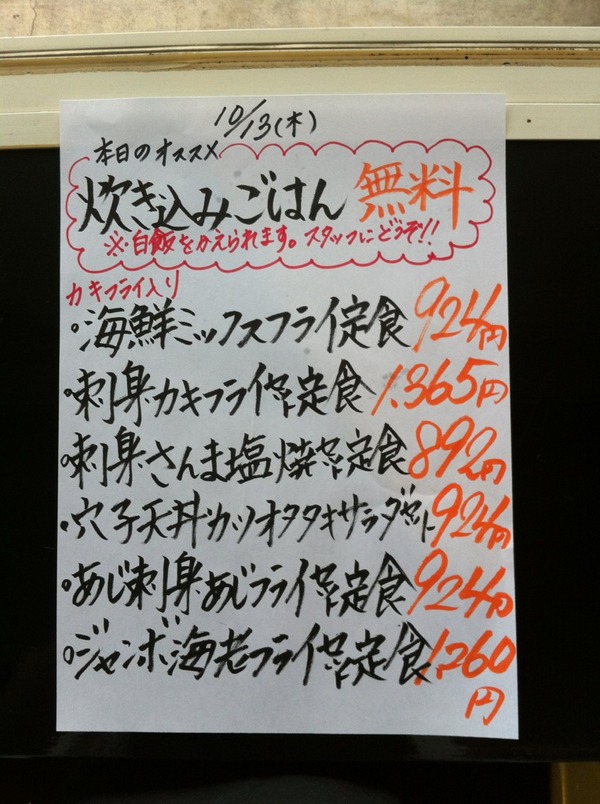 10/13(木)
本日のオススメ
炊き込みごはん 無料
※白飯をかえられます。スタッフにどうぞ!!
カキフライ入り
・海鮮ミックスフライ定食 924円
・刺身カキフライセット定食 1.365円
・刺身さんま塩焼セット定食 892円
・穴子天丼カツオタタキサラダセット 924円
・あじ刺身あじフライセット定食 924円
・ジャンボ海老フライセット定食 1.260
円